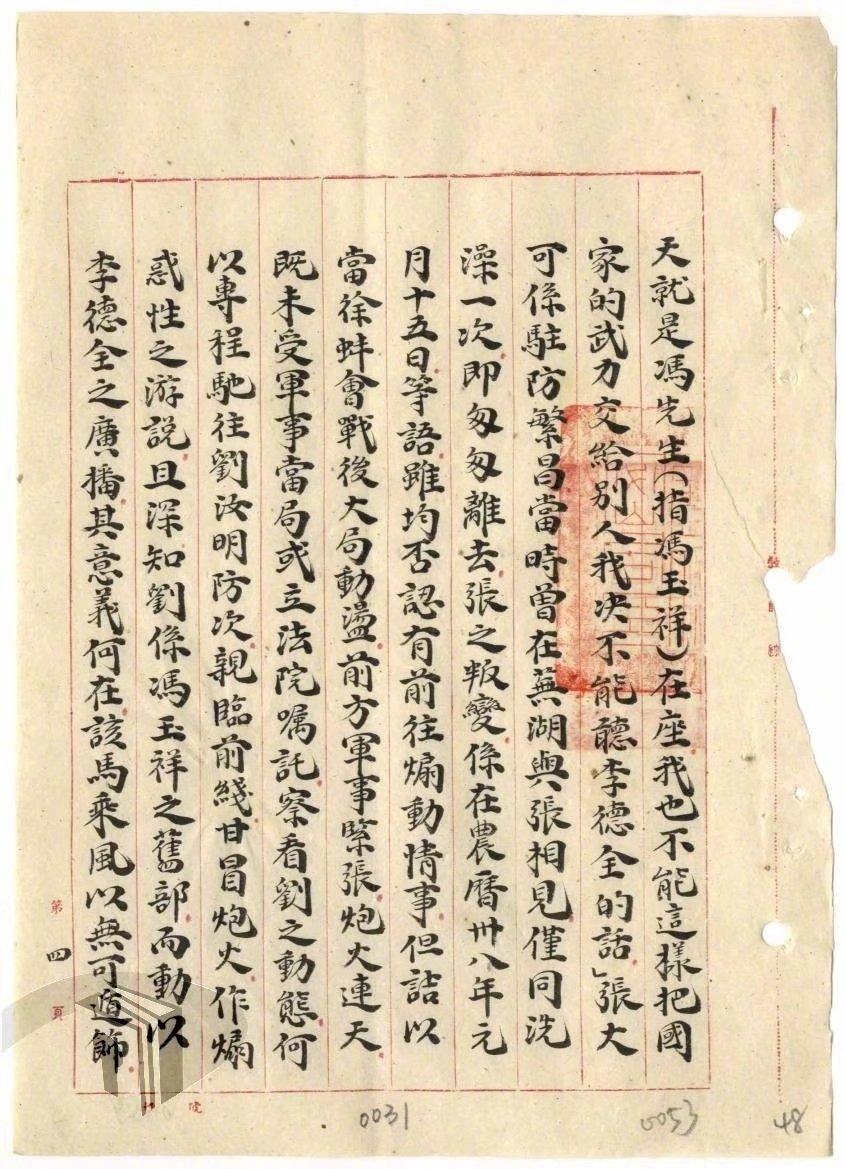 天就是馮先生（指馮玉祥）在座我也不能這樣把國
家的武力交給別人我決不能聽李德全的話」張大
可係駐防繁昌當時曾在蕪湖與張相見僅同洗
澡一次即匆匆離去張之叛變係在農曆卅八年元
月十五日等語雖均否認有前往煽動情事但詰以
當徐蚌會戰後大局動盪前方軍事緊張炮火連天
既未受軍事當局或立法院嘱託察看劉之動態何
以專程馳往劉汝明防次親臨前綫甘冒炮火作煽
惑性之游說且深知劉係馮玉祥之舊部而動以
李德全之廣播其意義何在該馬乘風以無可遁飾
第四頁
院
0031
0053
48